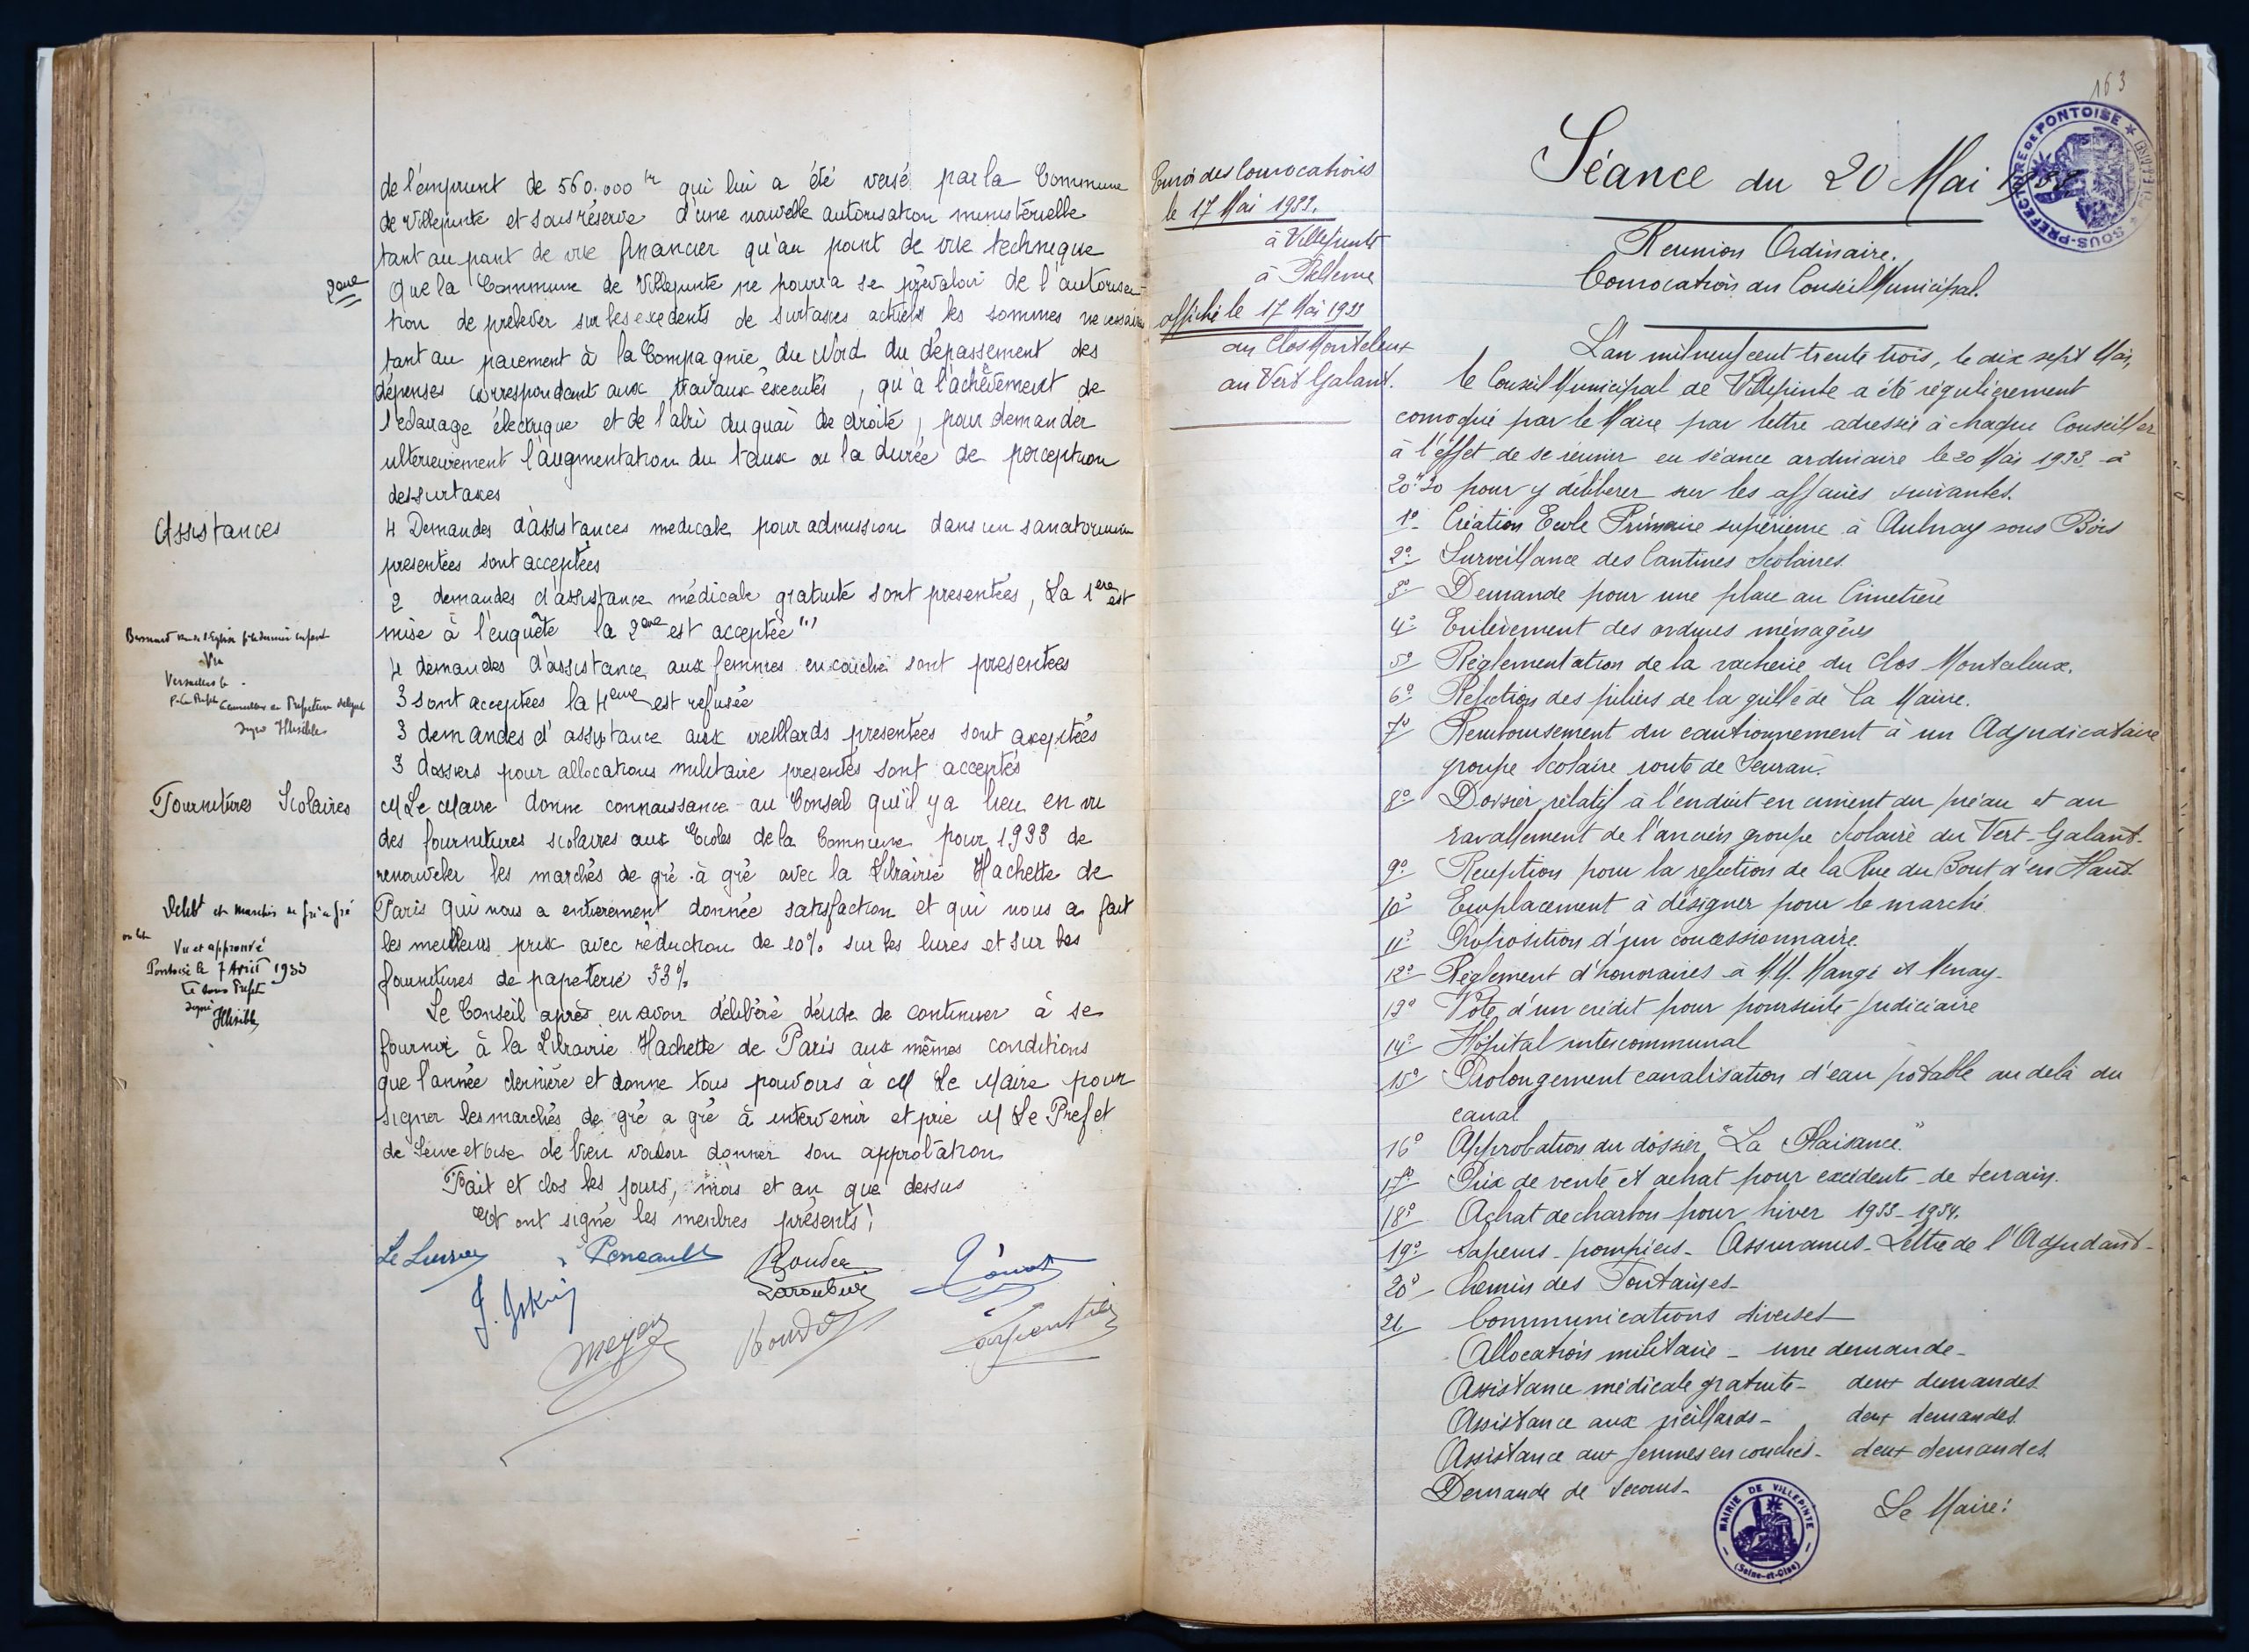 de l'emprunt de 560.000 fr qui lui a été versé par la Commune
de Villepinte et sous réserve d'une nouvelle autorisation ministérielle
tant au point de vue financier qu'au point de vue technique
2eme
Que la Commune de Villepinte ne pourra se prévaloir de l'autorisa-
tion de prelever sur les exedents de surtaxes actuels les sommes necessaires
tant au paiement à la Compagnie du Nord du dépassement des
dépenses correspondant aux travaux éxecutés, qu'à l'achêvement de
l'eclairage électrique et de l'abri du quai de droite, pour demander
ulterieurement l'augmentation du taux ou la durée de perception
des surtaxes
Assistances
4 Demandes d'assistances medicale pour admission dans un sanatorium
presentées sont acceptées
2 demandes d'assistance médicale gratuite sont presentées, La 1ere est
mise à l'enquête la 2eme est acceptée
4 demandes d'assistance aux femmes en couche sont presentées
3 sont acceptées la 4eme est refusée
3 demandes d'assistance aux vieillards presentées sont aceptées
3 dossiers pour allocations militaire presentés sont acceptés
Vu
Versailles le
Conseiller de Prefecture délégué
Signé Illisible
Fournitures Scolaires
M Le Maire donne connaissance au Conseil qu'il y a lieu en vu
des fournitures scolaires aux Ecoles de la Commune pour 1933 de
renouveler les marchés de gré à gré avec la Librairie Hachette de
Paris qui nous a entierement donnée satisfaction et qui nous a fait
les meilleurs prix avec réduction de 10% sur les livres et sur les
fournitures de papeterie 33%
Delibt et marchés de gré à gré
Vu et approuvé
Pontoise le 7 Avril 1933
Le Sous Prefet
signé Illisible
Le Conseil après en avoir délibéré décide de continuer à se
fournir à la Librairie Hachette de Paris aux mêmes conditions
que l'année dernière et donne tous pouvoirs à M Le Maire pour
signer les marchés de gré a gré à intervenir et prie M Le Prefet
de Seine et Oise de bien vouloir donner son approbation
Fait et clos les jours, mois et an que dessus
Et ont signé les membres présents!
Meyer
163
SOUS-PRÉFECTURE DE PONTOISE
Envoi des Convocations
le 17 Mai 1933.
à Villepinte
affiché le 17 Mai 1933
au Clos Montceleux
au Vert Galant.
Séance du 20 Mai
Reunion Ordinaire.
Convocation du Conseil Municipal.
L'an mil neuf cent trente trois, le dix sept Mai,
le Conseil Municipal de Villepinte a été régulièrement
convoqué par le Maire par lettre adressée à chaque Conseiller
à l'effet de se réunir en séance ordinaire le 20 Mai 1933 à
20h30 pour y délibérer sur les affaires suivantes.
1º Création Ecole Primaire supérieure à Aulnay sous Bois
2º Surveillance des Cantines Scolaires
3º Demande pour une place au Cimetière
4º Enlèvement des ordures ménagères
5º Réglementation de la vacherie du Clos Montceleux.
6º Refection des piliers de la grille de la Mairie.
7º Remboursement du cautionnement à un Adjudicataire
groupe Scolaire route de Sevran.
8º Dossier rélatif à l'enduit en ciment du préau et au
ravallement de l'ancien groupe Scolaire du Vert-Galant-
9º Reception pour la refection de la Rue du Bout d'en Haut
10º Emplacement à désigner pour le marché
11º Proposition d'un concessionnaire
12º Réglement d'honoraires à M.M. Mangé et
13º Vote d'un crédit pour poursuite Judiciaire
14º Hôpital intercommunal
15º Prolongement canalisation d'eau potable au delà du
canal
16º Approbation du dossier "La Plaisance"
17º Prix de vente et achat pour excédents de terrain.
18º Achat de charbon pour hiver 1933-1934.
19º Sapeurs-pompiers- Assurances- Lettre de l'Adjudant-
20º Chemin des Fontaines-
21 Communications diverses
Allocation militaire - une demande-
Assistance médicale gratuite- deux demandes
Assistance aux vieillards- deux demandes
Assistance aux femmes en couches- deux demandes
Demande de secours-
Le Maire:
MAIRIE DE VILLEPINTE
(Seine-et-Oise)